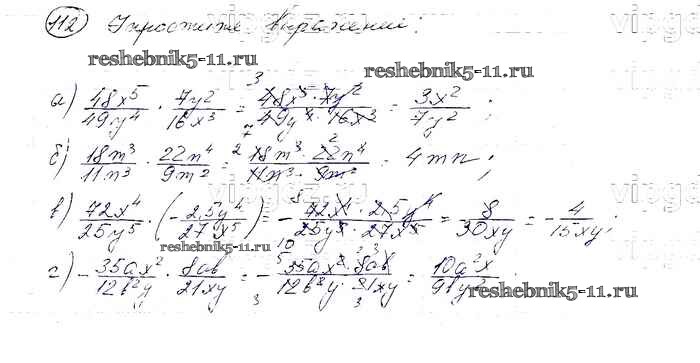 112 Упростите выражение:
reshebnik5-11.ru
reshebnik5-11.ru
а) 48x⁵/49y⁴ · 7y²/16x³ = 48x⁵·7y²/49y⁴·16x³ = 3x²/7y² ;
б) 18m³/11n³ · 22n⁴/9m² = 18m³·22n⁴/11n³·9m² = 4mn ;
в) 72x⁴/25y⁵ · (-2,5y⁴/27x⁵) = - 72x⁴·2,5y⁴/25y⁵·27x⁵ = 8/30xy = - 4/15xy ;
reshebnik5-11.ru
г) - 35ax²/12b²y · 8ab/21xy = - 35ax²·8ab/12b²y·21xy = 10a²x/9by²
reshebnik5-11.ru